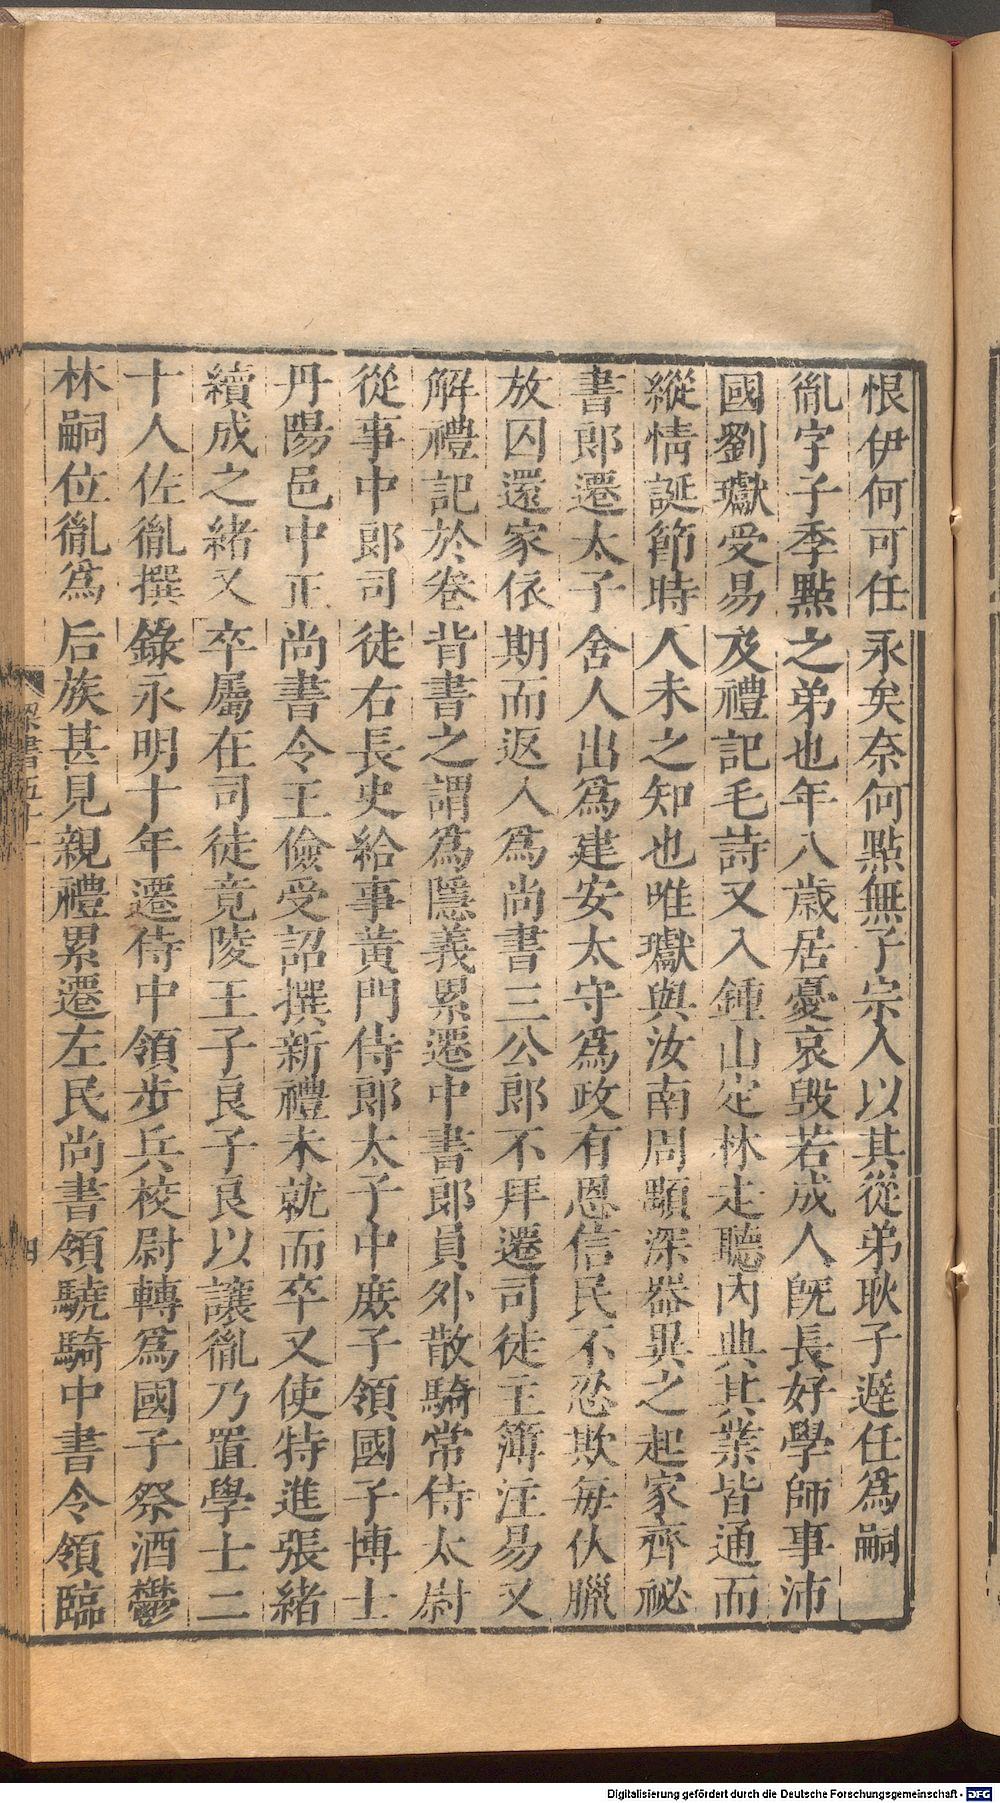 恨伊何可任永矣奈何點無子宗人以其從弟耿子遲任爲嗣
胤字子季點之弟也年八歲居憂哀毀若成人旣長好學師事沛
國劉瓛受易及禮記毛詩又入鍾山定林走聽內典其業皆通而
縱情誕節時人未之知也唯瓛與汝南周顒深器異之起家齊祕
書郎遷太子舍人出爲建安太守爲政有恩信民不忍欺每伏臘
放囚還家依期而返入爲尚書三公郎不拜遷司徒主簿注易又
解禮記於卷背書之謂爲隱義累遷中書郎員外散騎常侍太尉
從事中郎司徒右長史給事黃門侍郎太子中庶子領國子博士
丹陽邑中正尚書令王儉受詔撰新禮未就而卒又使特進張緒
續成之緒又卒屬在司徒竟陵王子良子良以讓胤乃置學士二
十人佐胤撰錄永明十年遷侍中領步兵校尉轉爲國子祭酒鬱
林嗣位胤爲后族甚見親禮累遷左民尚書領驍騎中書令領臨
梁書五十一
四
Digitalisierung gefördert durch die Deutsche Forschungsgemeinschaft - DFG